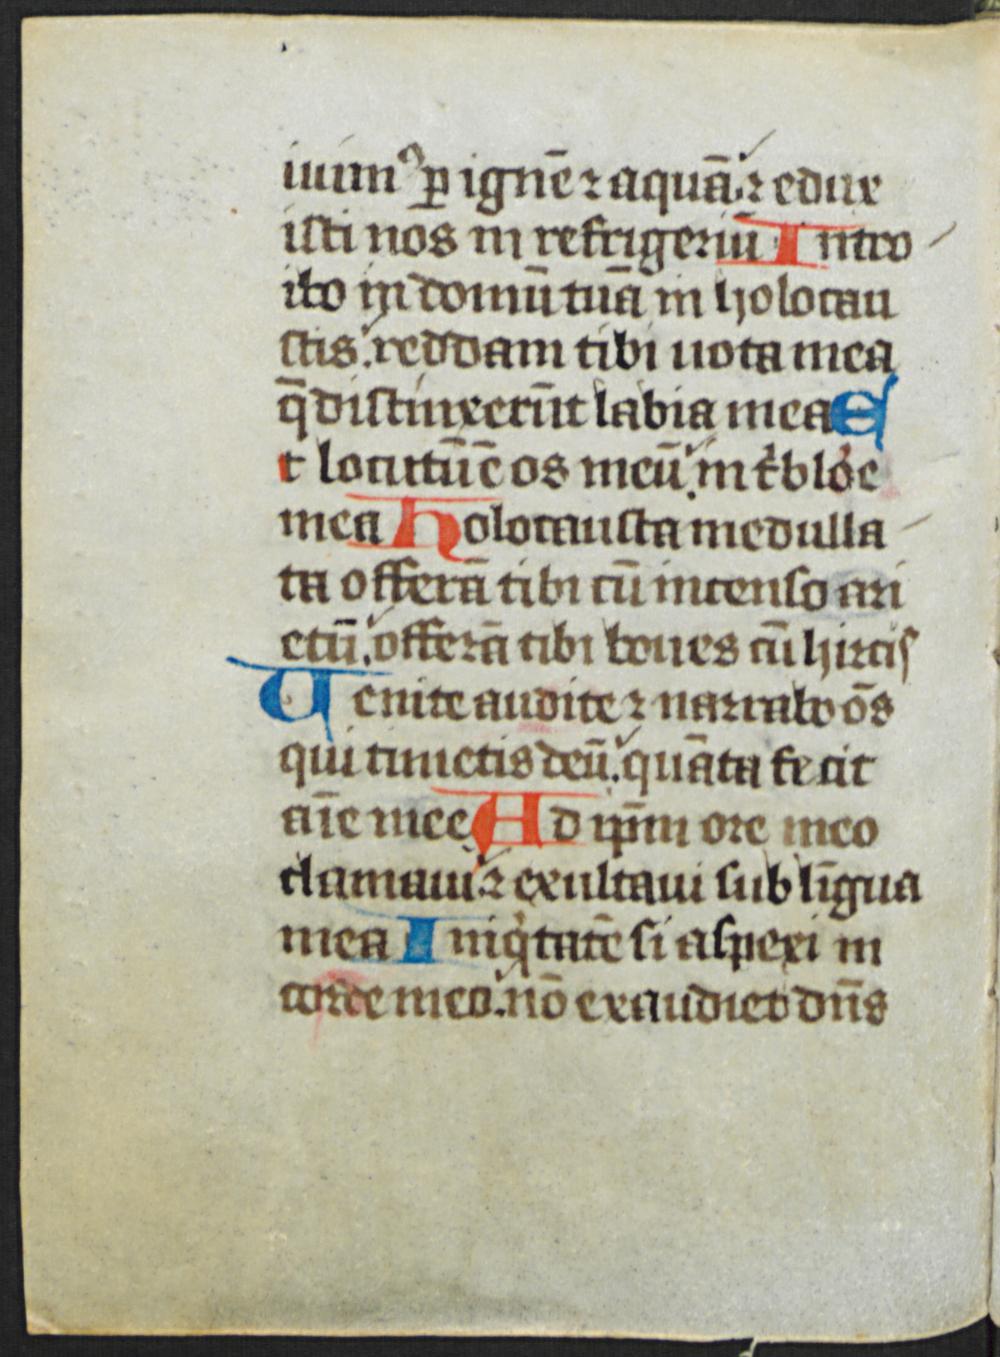 iuimꝰ ꝑ ignē ⁊ aquā. ⁊ edux
isti nos in refrigeriū Intro
ibo in domū tuā in holocau
stis. reddam tibi uota mea
q̄ distinxerūt labia mea E
t locutū ē os meū. in t̾bloē
mea Holocausta medulla
ta offerā tibi cū incenso ari
etū. offerā tibi boues cū hircis
Uenite audite ⁊ narrabo ōs
qui timetis deū. quāta fecit
aīe mee Ad ip̄m ore meo
clamaui. ⁊ exultaui sub līgua
mea Iniqͥtatē si aspexi in
corde meo. nō exaudiet dn̄s